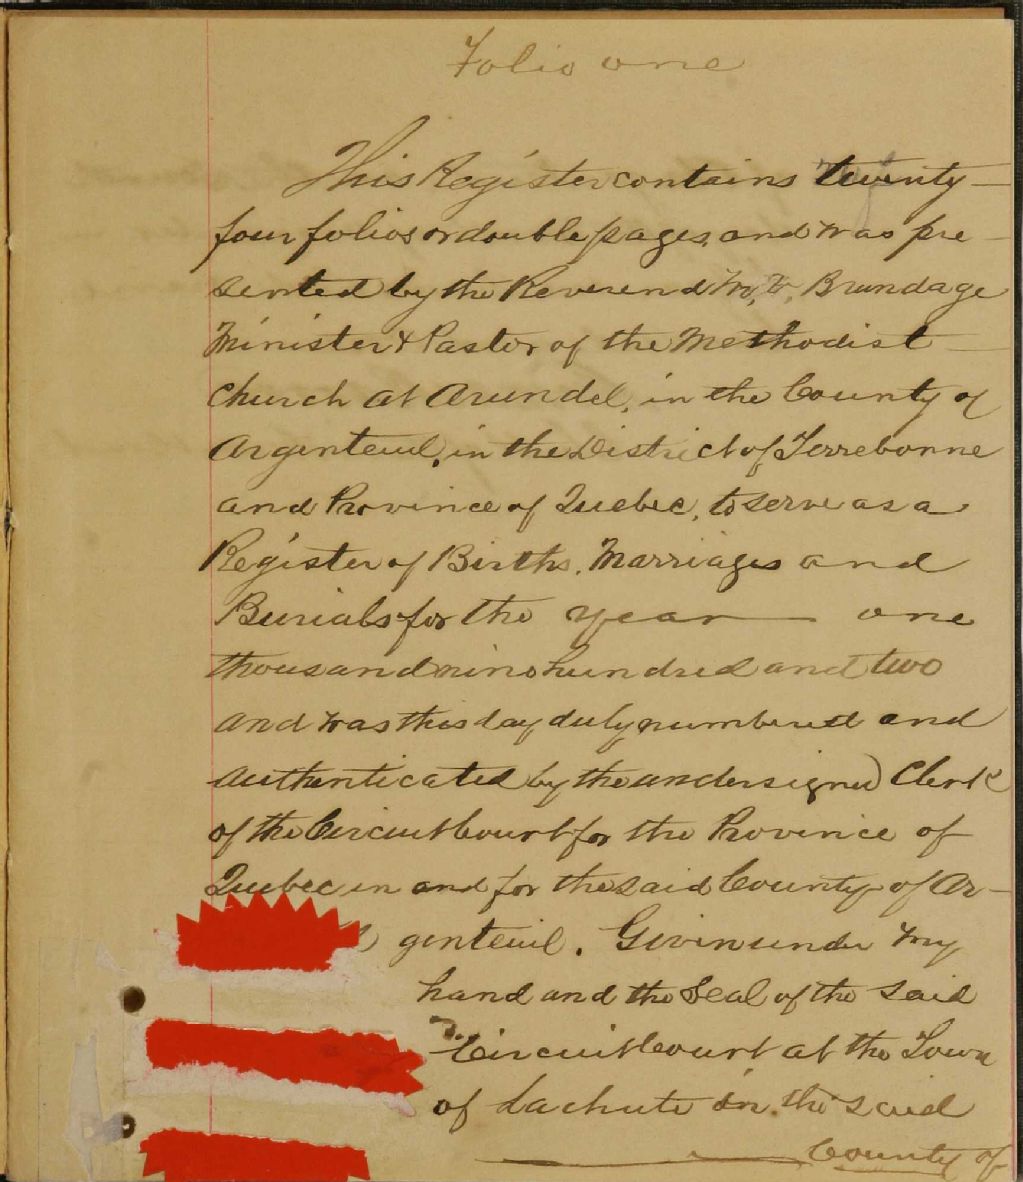 Folio one
This Register contains twenty
four folios or double pages, and was pre
sented by the Reverend W. Brundage
Minister & Pastor of the Methodist
Church at Arundel, in the County of
Argenteuil, in the District of Terrebonne
and Province of Quebec, to serve as a
Register of Births, Marriages and
Burials for the year one
thousand nine hundred and two
and was this day duly numbered and
authenticated by the undersigned Clerk
of the Circuit Court for the Province of
Quebec in and for the said County of Ar-
genteuil. Given under my
hand and the Seal of the said
Circuit Court at the Town
of Lachute in the said
County of